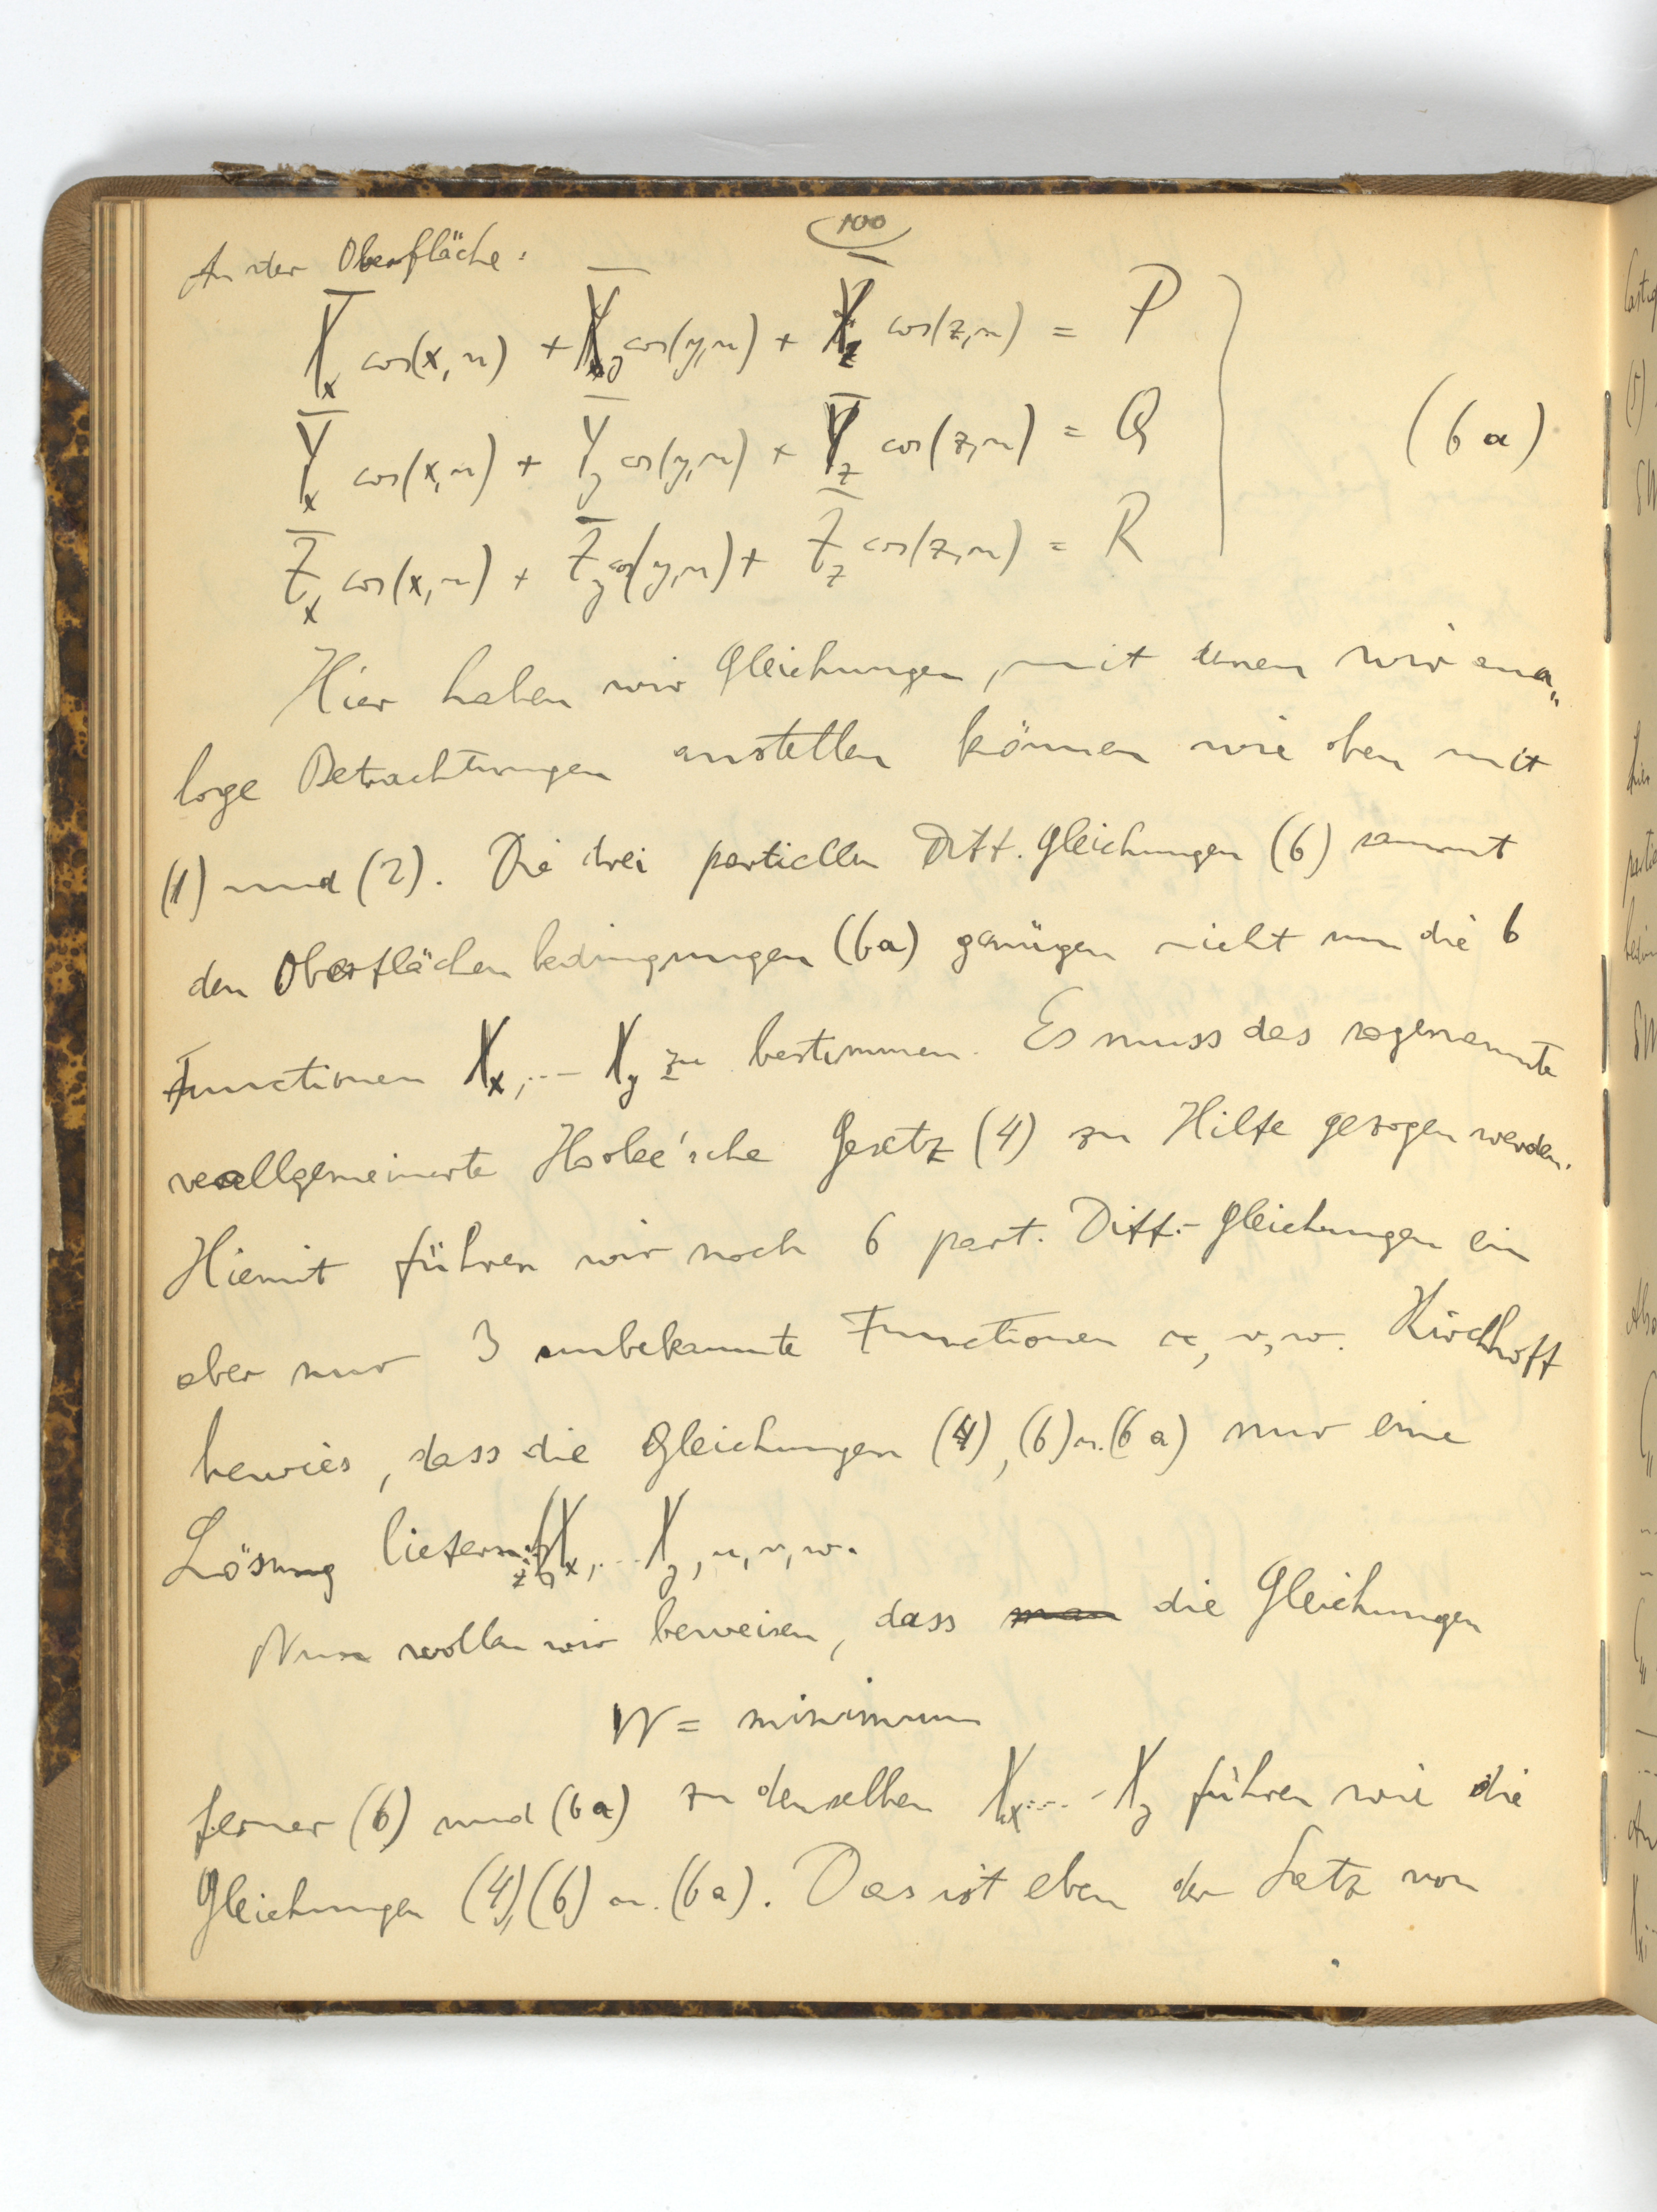 100
An der Oberfläche:
X̅x cos(x,n) + X̅y cos(y,n) + X̅z cos(z,n) = P
Y̅x cos(x,n) + Y̅y cos(y,n) + Y̅z cos(z,n) = Q (6a)
Z̅x cos(x,n) + Z̅y cos(y,n) + Z̅z cos(z,n) = R
Hier haben wir Gleichungen, mit denen wir ana„
loge Betrachtungen anstellen können wie oben mit
(1) und (2). Die drei partiellen Diff. Gleichungen (6) sammt
den Oberflächenbedingungen (6a) genügen nicht um die 6
Functionen Xx,... Xy zu bestimmen. Es muss das sogenannte
verallgemeinerte Hooke'sche Gesetz (4) zu Hilfe gezogen werden.
Hiemit führen wir noch 6 part. Diff.-Gleichungen ein
aber nur 3 unbekannte Functionen u, v, w. Kirchhoff
bewies, dass die Gleichungen (4), (6) u. (6a) nur eine
Lösung liefern für Xx, ... Xy, u, v, w.
Nun wollen wir beweisen, dass man die Gleichungen
W = minimum
ferner (6) und (6a) zu denselben Xx... Xy führen wie die
Gleichungen (4), (6) u. (6a). Das ist eben der Satz von